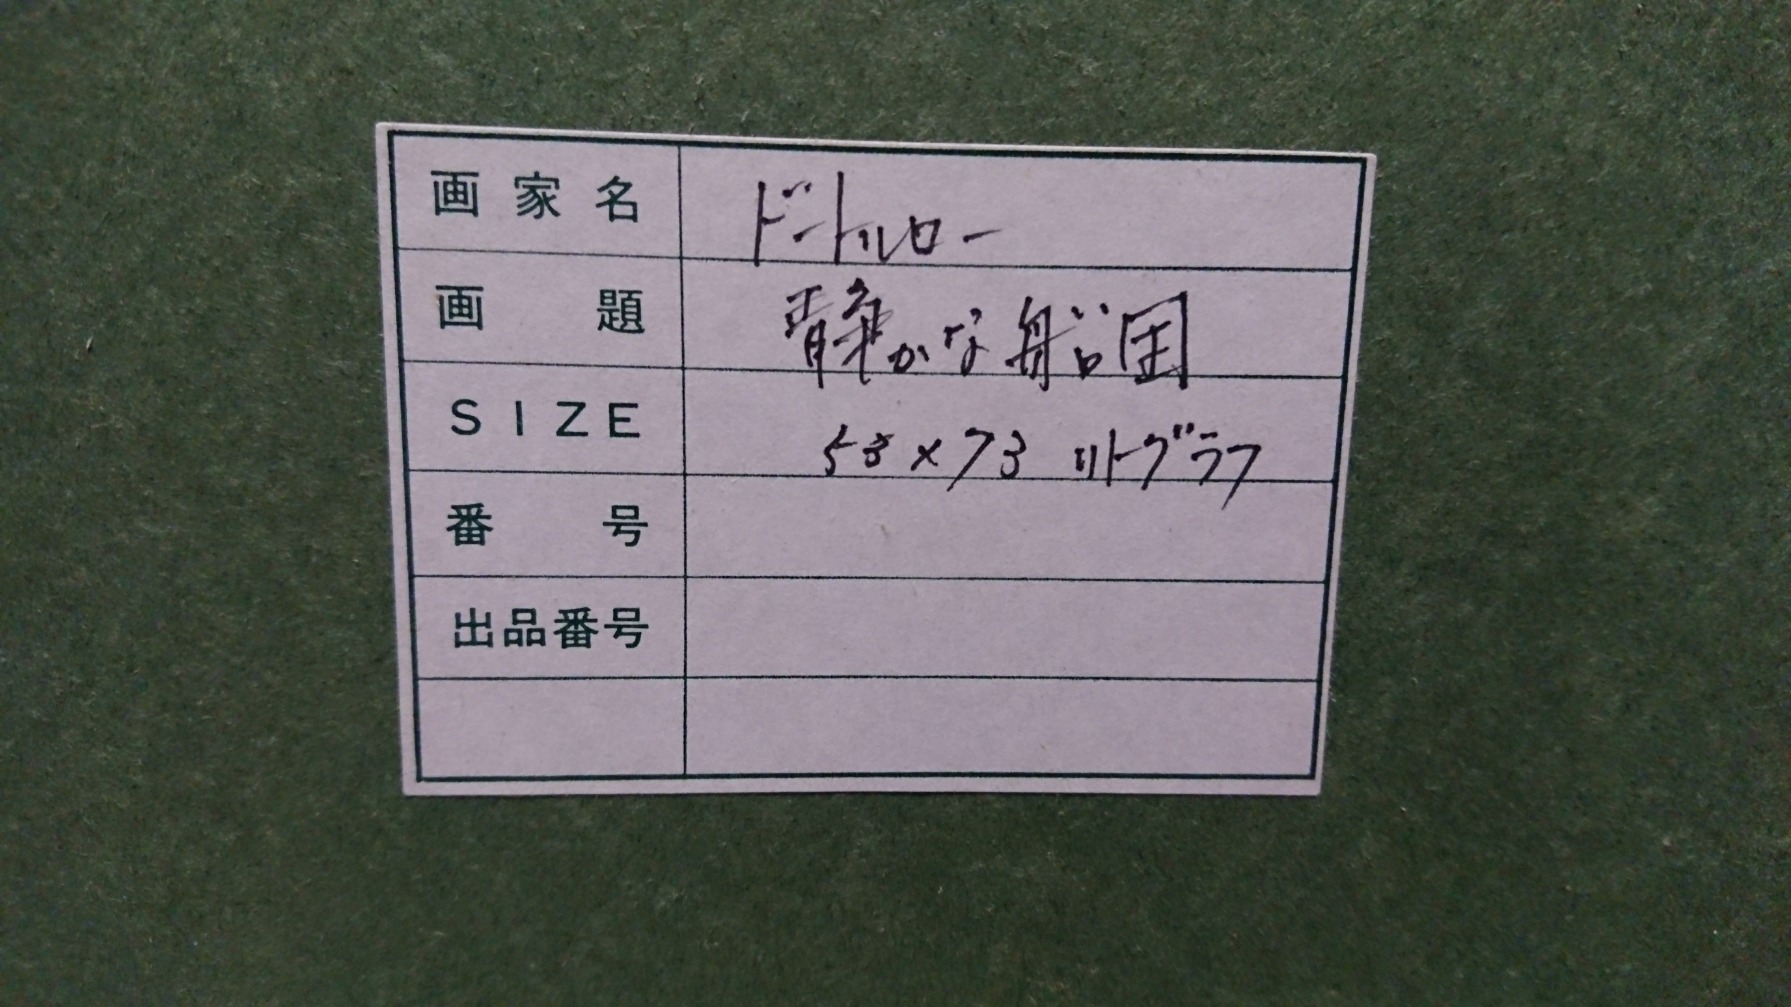 画家名 ドートルロー
画題 静かな船団
SIZE 53×73 リトグラフ
番号
出品番号